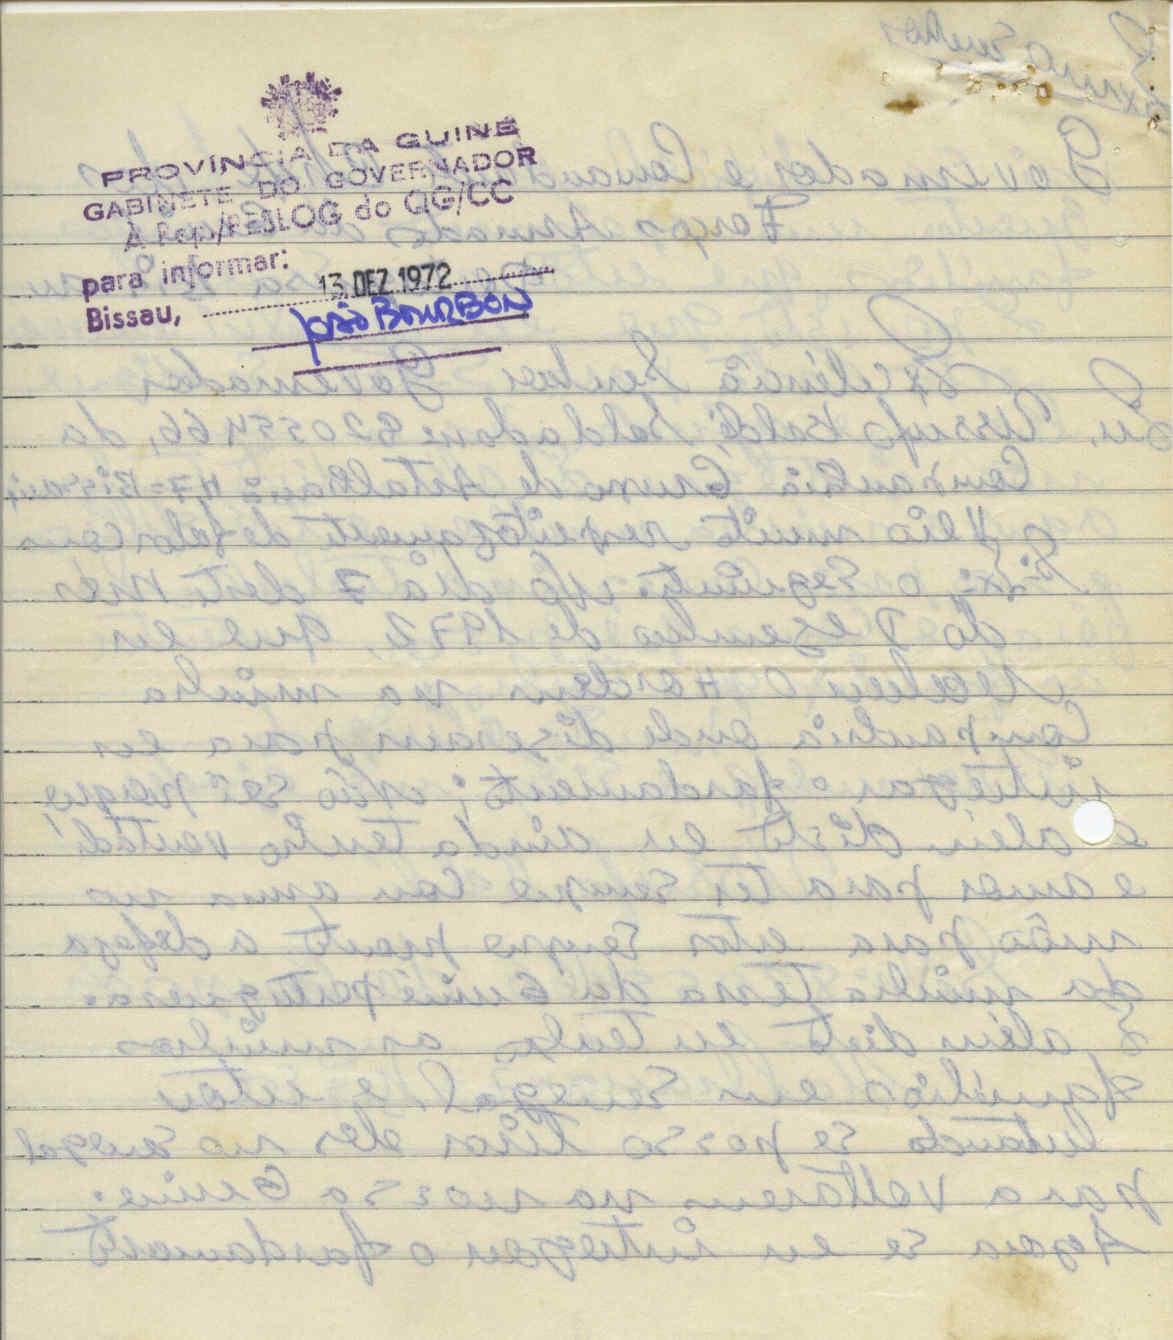 PROVÍNCIA DA GUINÉ
GABINETE DO GOVERNADOR
À Rep/PESLOG do QG/CC
para informar:
Bissau, 13. DEZ. 1972
João BOURBON
Exmo Senhor
Governador e
Forças Armadas
Excelência Senhor Governador
Eu, Ussufo Baldé, Soldado nº 82055466, da
Companhia
muito de falar com
o seguinte: No dia 7 deste Mês
do Dezembro de 1972, que eu
Recebeu o Hordem na minha
Companhia onde diseram para eu
intregar o fardamento; Não sei porque
e alem disto eu ainda tenho vontadi
e amor para ter sempre com arma no
mão para estar sempre pronto a defeza
da minha terra da Guiné portuguesa.
E alem disto eu tenho as minhas
familias em Senegal e estou
lutando se posso tirar eles no senegal
para voltarem na nossa Guine.
Agora se eu intregou o fardamento